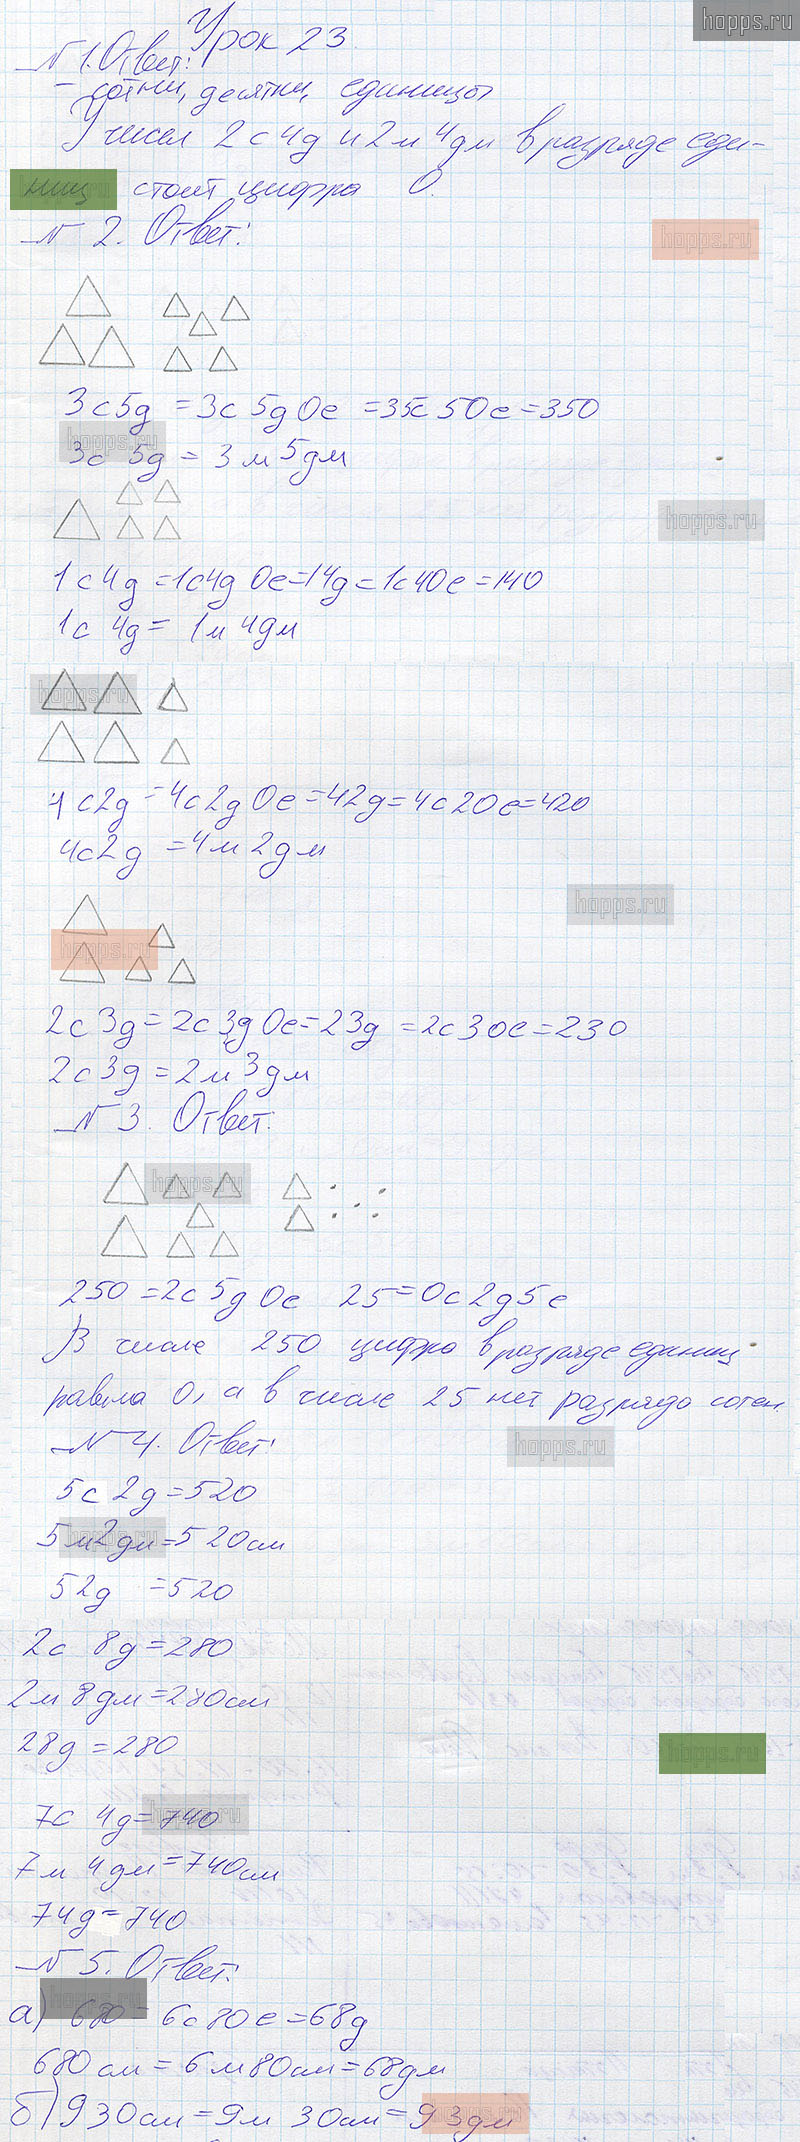 hopps.ru
Урок 23.
№ 1. Ответ:
- сотни, десятки, единицы
У чисел 2с4д и 2м4дм в разряде еди-
ниц стоит цифра 0.
№ 2. Ответ:
hopps.ru
3с5д = 3с 5д 0е = 35с 50е = 350
hopps.ru
3с 5д = 3м 5дм
hopps.ru
1с4д = 1с4д 0е = 14д = 1с40е = 140
1с 4д = 1м 4дм
hopps.ru
4с2д = 4с2д 0е = 42д = 4с20е = 420
4с2д = 4м 2дм
hopps.ru
hopps.ru
2с 3д = 2с 3д 0е = 23д = 2с30е = 230
2с 3д = 2м 3дм
№ 3. Ответ:
hopps.ru
250 = 2с 5д 0е 25 = 0с2д5е
В числе 250 цифра в разряде единиц
равна 0, а в числе 25 нет разряда сотен.
№ 4. Ответ:
hopps.ru
5с 2д = 520
hopps.ru
5м2дм = 520см
52д = 520
2с 8д = 280
2м 8дм = 280см
28д = 280
hopps.ru
hopps.ru
7с 4д = 740
7м 4дм = 740см
74д = 740
№ 5. Ответ:
hopps.ru
а) 680 = 6с80е = 68д
680см = 6м80см = 68дм
hopps.ru
б) 930см = 9м 30см = 93дм